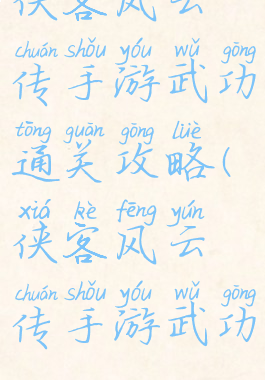 侠客风云
chuán shǒu yóu wǔ gōng
传手游武功
tōng guān gōng lüè
通关攻略(
xiá kè fēng yún
侠客风云
chuán shǒu yóu wǔ gōng
传手游武功